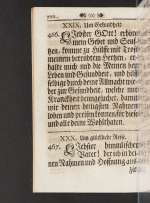 XXIX. Um Gesundheit.
466. Liebster GOtt! erhöre
mein Gebet und Seuf-
zen, komme zu Hülffe mit Trost
meinem betrübten Hertzen, er-
halte mich und die Meinen, beym
Leben und Gesundheit, und
der zur Gesundheit, welche mit
Kranckheit heimgesuchet, damit
wir deinen heiligen Nahmen
loben und preisen können, für diese
und alle deine Wohlthaten.
XXX. Um glückliche Reise.
467. Liebster himmlischer
Vater! der ich in dei-
nen Nahmen und Hoffnung aus